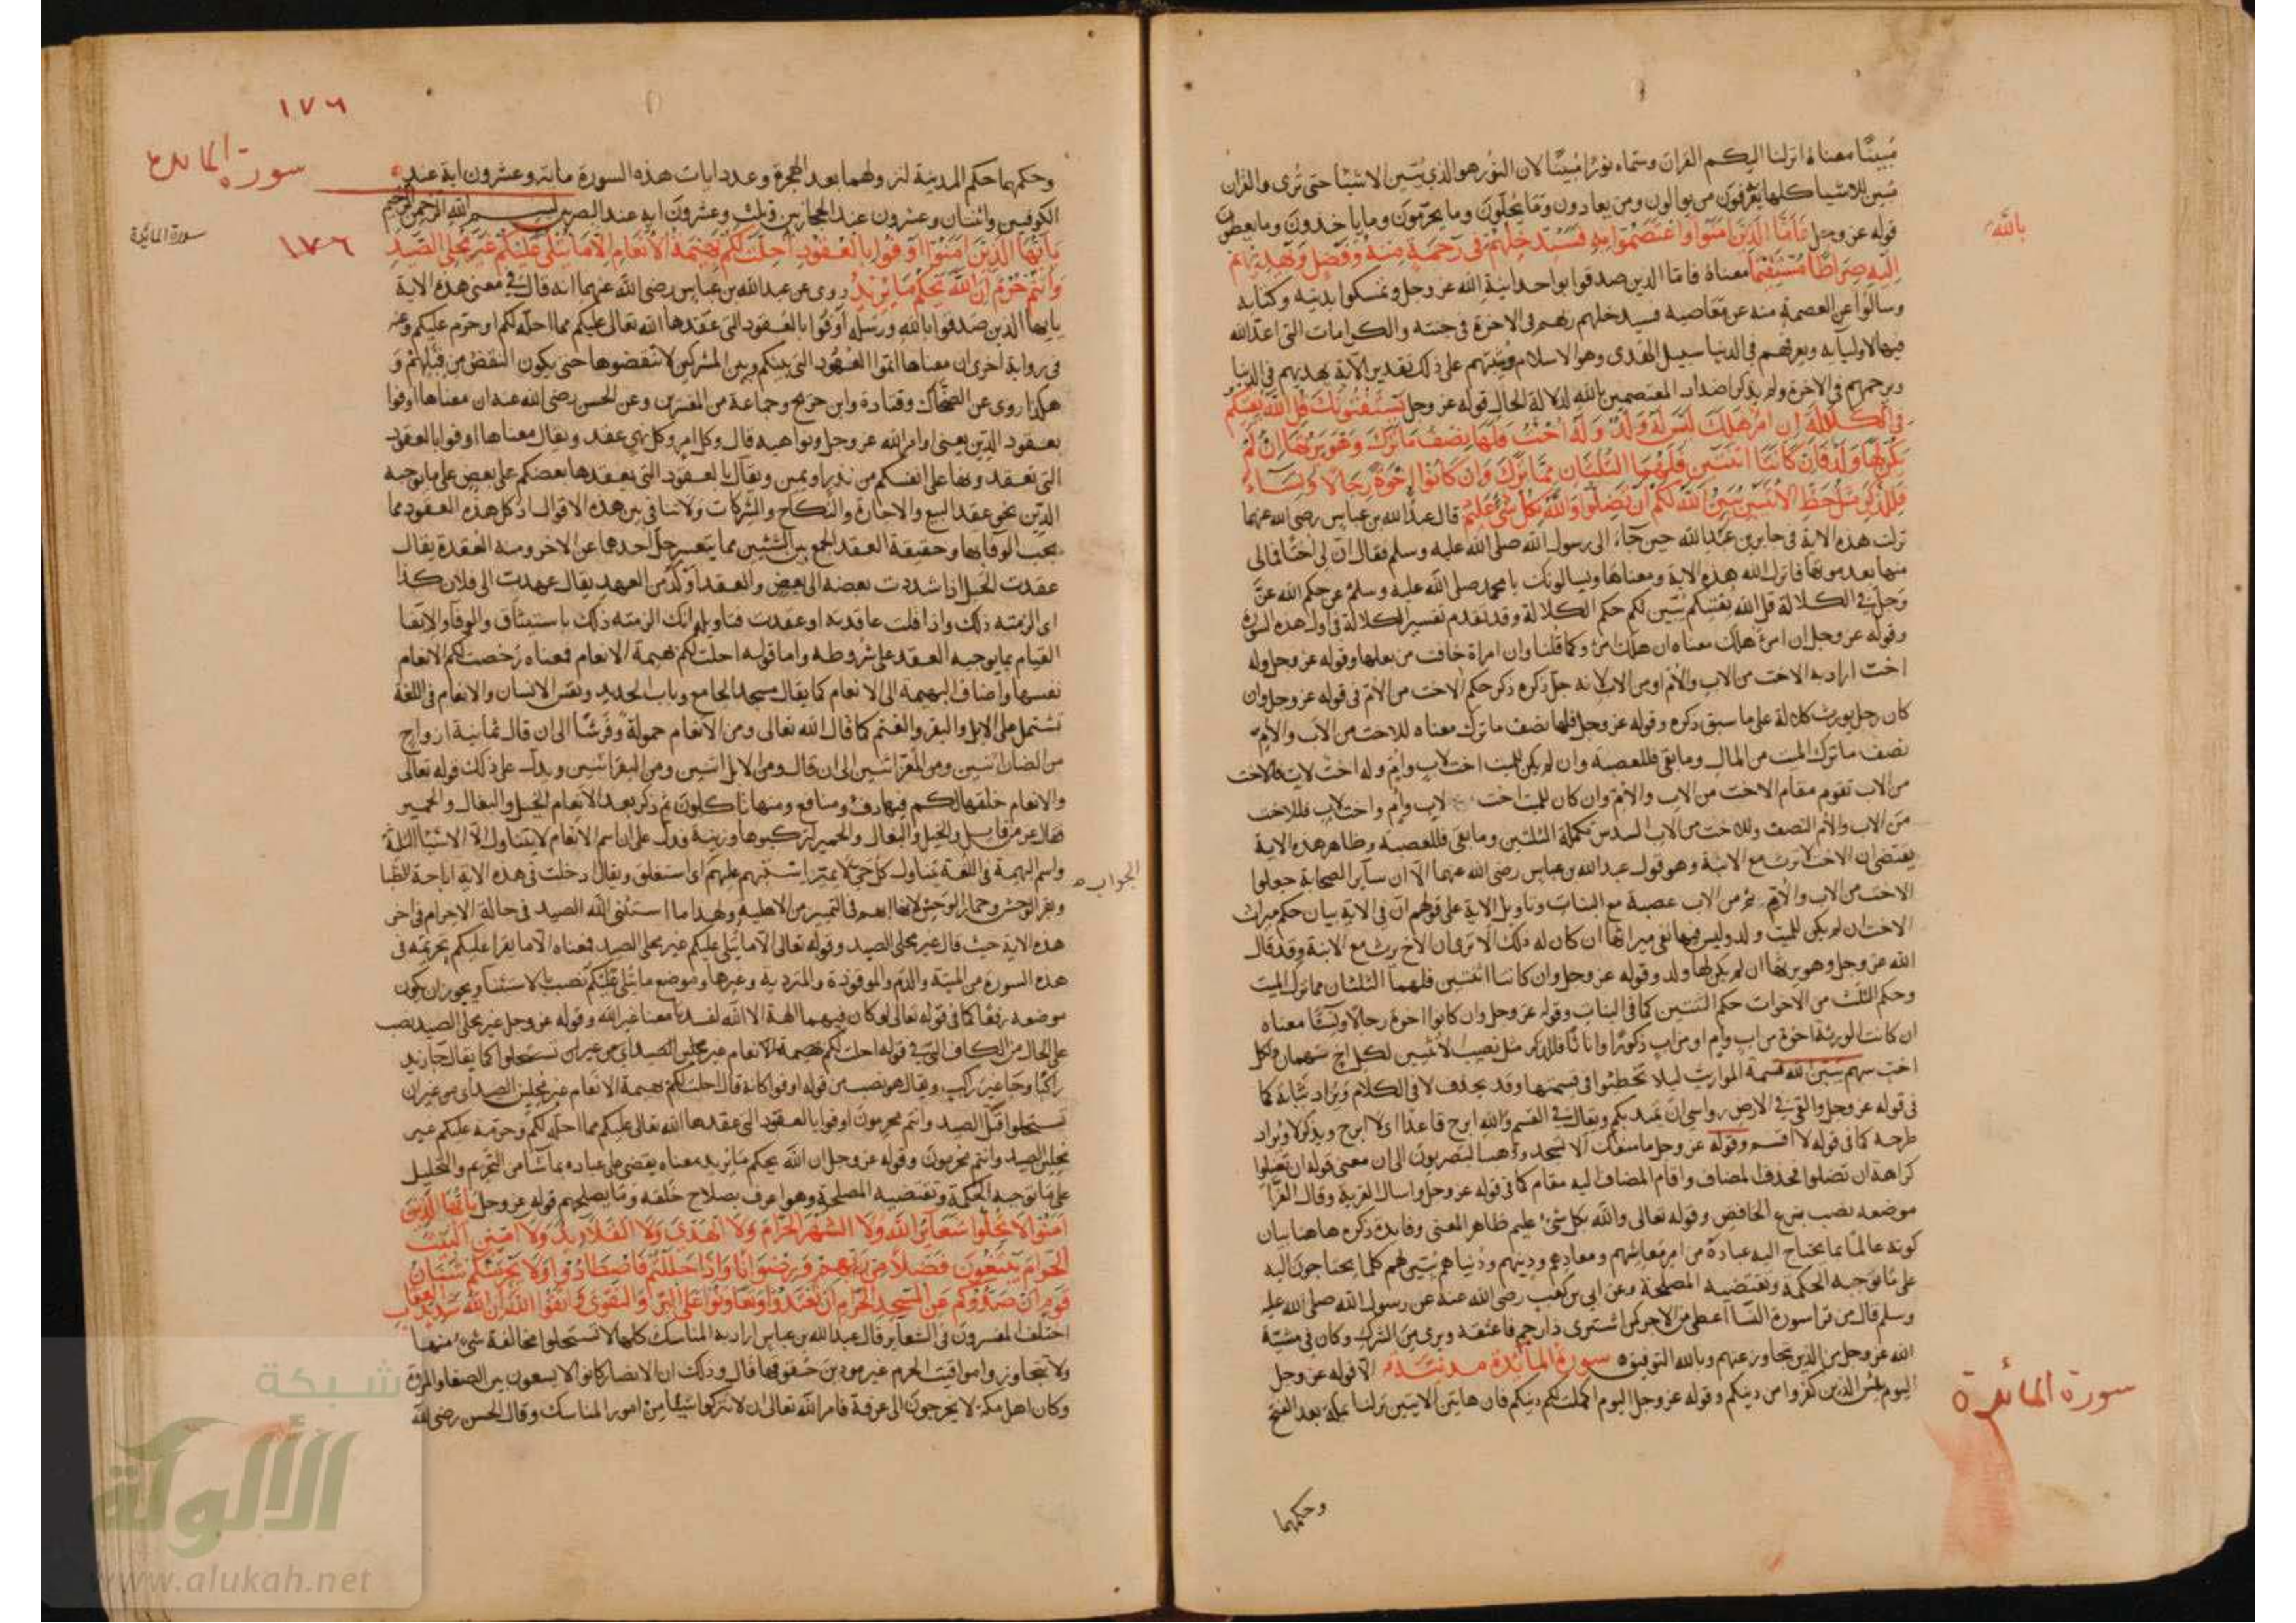 مُبينًا معناه انزلنا اليكم القران وسماه نورًا مُبينًا لان النور هو الذي يُبين الاشيا حتى تُرى والقران
مُبين للاشيا كلها يعرفون من يوالون ومن يعادون وما يُحلون وما يحرّمون وما ياخذون وما يعطون
قوله عز وجل فَاَمَّا الَّذِينَ امَنُوا وَاعْتَصَمُوا بِهِ فَسَيُدْخِلُهُمْ فِى رَحْمَةٍ مِنْهُ وَفَضْلٍ وَيَهْدِيهِمْ
بالله
اِلَيْهِ صِرَاطًا مُسْتَقِيمًا معناه فاما الذين صدقوا بواحدانية الله عز وجل وتمسكوا بدينه وكتابه
وسالوا عن العصمة منه عن معاصيه فسيدخلهم ربهم فى الاخرة فى جنته والكرامات التى اعد الله
فيها لاوليايه ويعرفهم فى الدنيا سبيل الهدى وهو الاسلام ويثبتهم على ذلك تقدير الاية يهديهم فى الدنيا
ويرحمهم فى الاخرة ولم يذكر اضداد المعتصمين بالله لدلالة الحال قوله عز وجل يَسْتَفْتُونَكَ قُلِ اللَّهُ يُفْتِيكُمْ
فِى الْكَلَالَةِ اِنِ امْرُؤٌ هَلَكَ لَيْسَ لَهُ وَلَدٌ وَلَهُ اُخْتٌ فَلَهَا نِصْفُ مَا تَرَكَ وَهُوَ يَرِثُهَا اِنْ لَمْ
يَكُنْ لَهَا وَلَدٌ فَاِنْ كَانَتَا اثْنَتَيْنِ فَلَهُمَا الثُّلُثَانِ مِمَّا تَرَكَ وَاِنْ كَانُوا اِخْوَةً رِجَالًا وَنِسَاءً
فَلِلذَّكَرِ مِثْلُ حَظِّ الْاُنْثَيَيْنِ يُبَيِّنُ اللَّهُ لَكُمْ اَنْ تَضِلُّوا وَاللَّهُ بِكُلِّ شَىْءٍ عَلِيمٌ قال عبد الله بن عباس رضى الله عنهما
نزلت هذه الاية فى جابر بن عبد الله حين جاء الى رسول الله صلى الله عليه وسلم فقال ان لى اختا فمالى
منها بعد موتها فانزل الله هذه الاية ومعناها ويسالونك يا محمد صلى الله عليه وسلم عن حكم الله عز
وجل فى الكلالة قل الله يفتيكم يُبين لكم حكم الكلالة وقد تقدم تفسير الكلالة فى اول هذه السورة
وقوله عز وجل ان امرؤ هلك معناه ان هلك امرؤ وكما قلنا وان امراة خافت من بعلها وقوله عز وجل وله
اخت اراد به الاخت من الاب والام او من الاب لانه جل ذكره ذكر حكم الاخت من الام فى قوله عز وجل وان
كان رجل يورث كلالة على ما سبق ذكره وقوله عز وجل فلها نصف ما ترك معناه للاخت من الاب والام
نصف ما ترك الميت من المال وما بقى فللعصبة وان لم يكن للميت اخت لاب وام وله اخت لاب فالاخت
من الاب تقوم مقام الاخت من الاب والام وان كان للميت اخت لاب وام واخت لاب فللاخت
من الاب والام النصف وللاخت من الاب السدس تكملة الثلثين وما بقى فللعصبة وظاهر هذه الاية
يقتضى ان الاخت لا ترث مع الابنة وهو قول عبد الله بن عباس رضى الله عنهما الا ان ساير الصحابة جعلوا
الاخت من الاب والام ثم من الاب عصبة مع البنات وتاويل الاية على قولهم ان فى الاية بيان حكم ميراث
الاخت ان لم يكن للميت ولد وليس فيها نفى ميراثها ان كان له ذلك الا ترى ان الاخ يرث مع الابنة وقد قال
الله عز وجل وهو يرثها ان لم يكن لها ولد وقوله عز وجل وان كانتا اثنتين فلهما الثلثان مما ترك الميت
وحكم الثلث من الاخوات حكم الثنتين كما فى البنات وقوله عز وجل وان كانوا اخوة رجالا ونساءً معناه
ان كانت الورثة اخوة من اب وام او من اب ذكورًا واناثًا فللذكر مثل نصيب الانثيين لكل اخ سهمان ولكل
اخت سهم يبين الله قسمة المواريث ليلا تخطئوا فى قسمتها وقد يحذف لا فى الكلام ويُراد ثباته كما
فى قوله عز وجل والقى فى الارض رواسى ان تميد بكم ويقال فى القسم والله ابرح قاعدًا اى لا ابرح ويذكر لا ويُراد
طرحه كما فى قوله لا اقسم وقوله عز وجل ما منعك الا تسجد وذهب البصريون الى ان معنى قوله ان تضلوا
كراهة ان تضلوا فحذف المضاف واقام المضاف اليه مقام كما فى قوله عز وجل واسال القرية وقال الفرّا
موضعه نصب بنزع الخافض وقوله تعالى والله بكل شىء عليم ظاهر المعنى وفايدة ذكره هاهنا بيان
كونه عالمًا بما يحتاج اليه عباده من امر معاشهم ومعادهم ودينهم ودنياهم يُبين لهم كلما يحتاجون اليه
على ما توجبه الحكمة وتقتضيه المصلحة وعن ابى بن كعب رضى الله عنه عن رسول الله صلى الله عليه
وسلم قال من قرا سورة النسا اعطى من الاجر كمن اشترى ذا رحم فاعتقه وبرى من الشرك وكان فى مشيّة
الله عز وجل من الذين يتجاوز عنهم وبالله التوفيق سورة المائدة مدنيّة الا قوله عز وجل
اليوم يئس الذين كفروا من دينكم وقوله عز وجل اليوم اكملت لكم دينكم فان هاتين الايتين نزلتا بمكة بعد الفتح
سورة المائدة
وحكمهما
١٧٦
سورة المائدة
سورة المائدة
١٧٦
وحكمهما حكم المدنية لنزولهما بعد الهجرة وعدد ايات هذه السورة ماية وعشرون اية عند
الكوفيين واثنتان وعشرون عند الحجازيين وثلث وعشرون اية عند البصريين بسم الله الرحمن الرحيم
يَا اَيُّهَا الَّذِينَ امَنُوا اَوْفُوا بِالْعُقُودِ اُحِلَّتْ لَكُمْ بَهِيمَةُ الْاَنْعَامِ اِلَّا مَا يُتْلَى عَلَيْكُمْ غَيْرَ مُحِلِّى الصَّيْدِ
وَاَنْتُمْ حُرُمٌ اِنَّ اللَّهَ يَحْكُمُ مَا يُرِيدُ روى عن عبد الله بن عباس رضى الله عنهما انه قال فى معنى هذه الاية
يا ايها الذين صدقوا بالله ورسله اوفوا بالعقود التى عقدها الله تعالى عليكم مما احله لكم او حرم عليكم وعنه
فى رواية اخرى ان معناها اتموا العهود التى بينكم وبين المشركين لا تنقضوها حتى يكون النقض من قبلهم و
هكذا روى عن الضحاك وقتادة وابن جريج وجماعة من المفسرين وعن الحسن رضى الله عنه ان معناها اوفوا
بعقود الدين يعنى اوامر الله عز وجل ونواهيه قال وكل امر وكل نهى عقد ويقال معناها اوفوا بالعقود
التى تعقدونها على انفسكم من نذر او يمين ويقال بالعقود التى يعقدها بعضكم على بعض على ما يوجبه
الدين نحو عقد البيع والاجارة والنكاح والشركات ولا تنافى بين هذه الاقوال اذ كل هذه العقود مما
يجب الوفا بها وحقيقة العقد الجمع بين الشيئين مما يتعسر حل احدهما عن الاخر ومنه العقدة يقال
عقدت الحبل اذا شددت بعضه الى بعض والعقد اوكد من العهد يقال عهدت الى فلان كذا
اى الزمته ذلك واذا قلت عاقدته او عقدت فتاويله انك الزمته ذلك باستيثاق والوفا والايفا
القيام بما يوجبه العقد على شروطه واما قوله احلت لكم بهيمة الانعام فمعناه رُخصت لكم الانعام
نفسها واضاف البهيمة الى الانعام كما يقال مسجد الجامع وباب الحديد ونفس الانسان والانعام فى اللغة
تشتمل على الابل والبقر والغنم كما قال الله تعالى ومن الانعام حمولةً وفرشًا الى ان قال ثمانية ازواج
من الضان اثنين ومن المعز اثنين الى ان قال ومن الابل اثنين ومن البقر اثنين ويدل على ذلك قوله تعالى
والانعام خلقها لكم فيها دفء ومنافع ومنها تاكلون ثم ذكر بعد الانعام الخيل والبغال والحمير
فقال عز من قايل والخيل والبغال والحمير لتركبوها وزينة فدل على ان اسم الانعام لا يتناول الا الاشيا الثلثة
واسم البهيمة فى اللغة يتناول كل حىّ لا يميز استبهم عليهم اى استغلق ويقال دخلت فى هذه الاية اباحة الظبا
الجواب
وبقر الوحش وحمار الوحش لانها ابهم فى التميز من الاهلية ولهذا ما استثنى الله الصيد فى حالة الاحرام فى اخر
هذه الاية حيث قال غير محلى الصيد وقوله تعالى الا ما يتلى عليكم غير محلى الصيد فمعناه الا ما يقرا عليكم تحريمه فى
هذه السورة من الميتة والدم والموقوذة والمتردية وغيرها وموضع ما يتلى عليكم نصب بالاستثنا ويجوز ان يكون
موضعه رفعًا كما فى قوله تعالى لو كان فيهما الهة الا الله لفسدتا معنا غير الله وقوله عز وجل غير محلى الصيد نصب
على الحال من الكاف التى فى قوله احلت لكم بهيمة الانعام غير محلين الصيد اى من غير ان تستحلوا كما يقال جا زيد
راكبًا وجا غير راكب ويقال هو نصب من قوله اوفوا كانه قال احلت لكم بهيمة الانعام غير محلين الصيد اى من غير ان
تستحلوا قتل الصيد وانتم محرمون اوفوا بالعقود التى عقدها الله تعالى عليكم مما احله لكم وحرمه عليكم غير
محلين الصيد وانتم محرمون وقوله عز وجل ان الله يحكم ما يريد معناه يقضى على عباده بما شا من التحريم والتحليل
على ما توجبه الحكمة وتقتضيه المصلحة وهو اعرف بصلاح خلقه وما يصلحهم قوله عز وجل يَا اَيُّهَا الَّذِينَ
امَنُوا لَا تُحِلُّوا شَعَائِرَ اللَّهِ وَلَا الشَّهْرَ الْحَرَامَ وَلَا الْهَدْىَ وَلَا الْقَلَائِدَ وَلَا امِّينَ الْبَيْتَ
الْحَرَامَ يَبْتَغُونَ فَضْلًا مِنْ رَبِّهِمْ وَرِضْوَانًا وَاِذَا حَلَلْتُمْ فَاصْطَادُوا وَلَا يَجْرِمَنَّكُمْ شَنَانُ
قَوْمٍ اَنْ صَدُّوكُمْ عَنِ الْمَسْجِدِ الْحَرَامِ اَنْ تَعْتَدُوا وَتَعَاوَنُوا عَلَى الْبِرِّ وَالتَّقْوَى وَاتَّقُوا اللَّهَ اِنَّ اللَّهَ شَدِيدُ الْعِقَابِ
اختلف المفسرون فى الشعاير قال عبد الله بن عباس اراد به المناسك كلها لا تستحلوا مخالفة شىء منها
ولا تجاوزوا مواقيت الحرم غير مودين حقوقها قال وذلك ان الانصار كانوا لا يسعون بين الصفا والمروة
وكان اهل مكة لا يخرجون الى عرفة فامر الله تعالى ان لا تتركوا شيئا من امور المناسك وقال الحسن رضى الله
شبكة
الألوكة
www.alukah.net